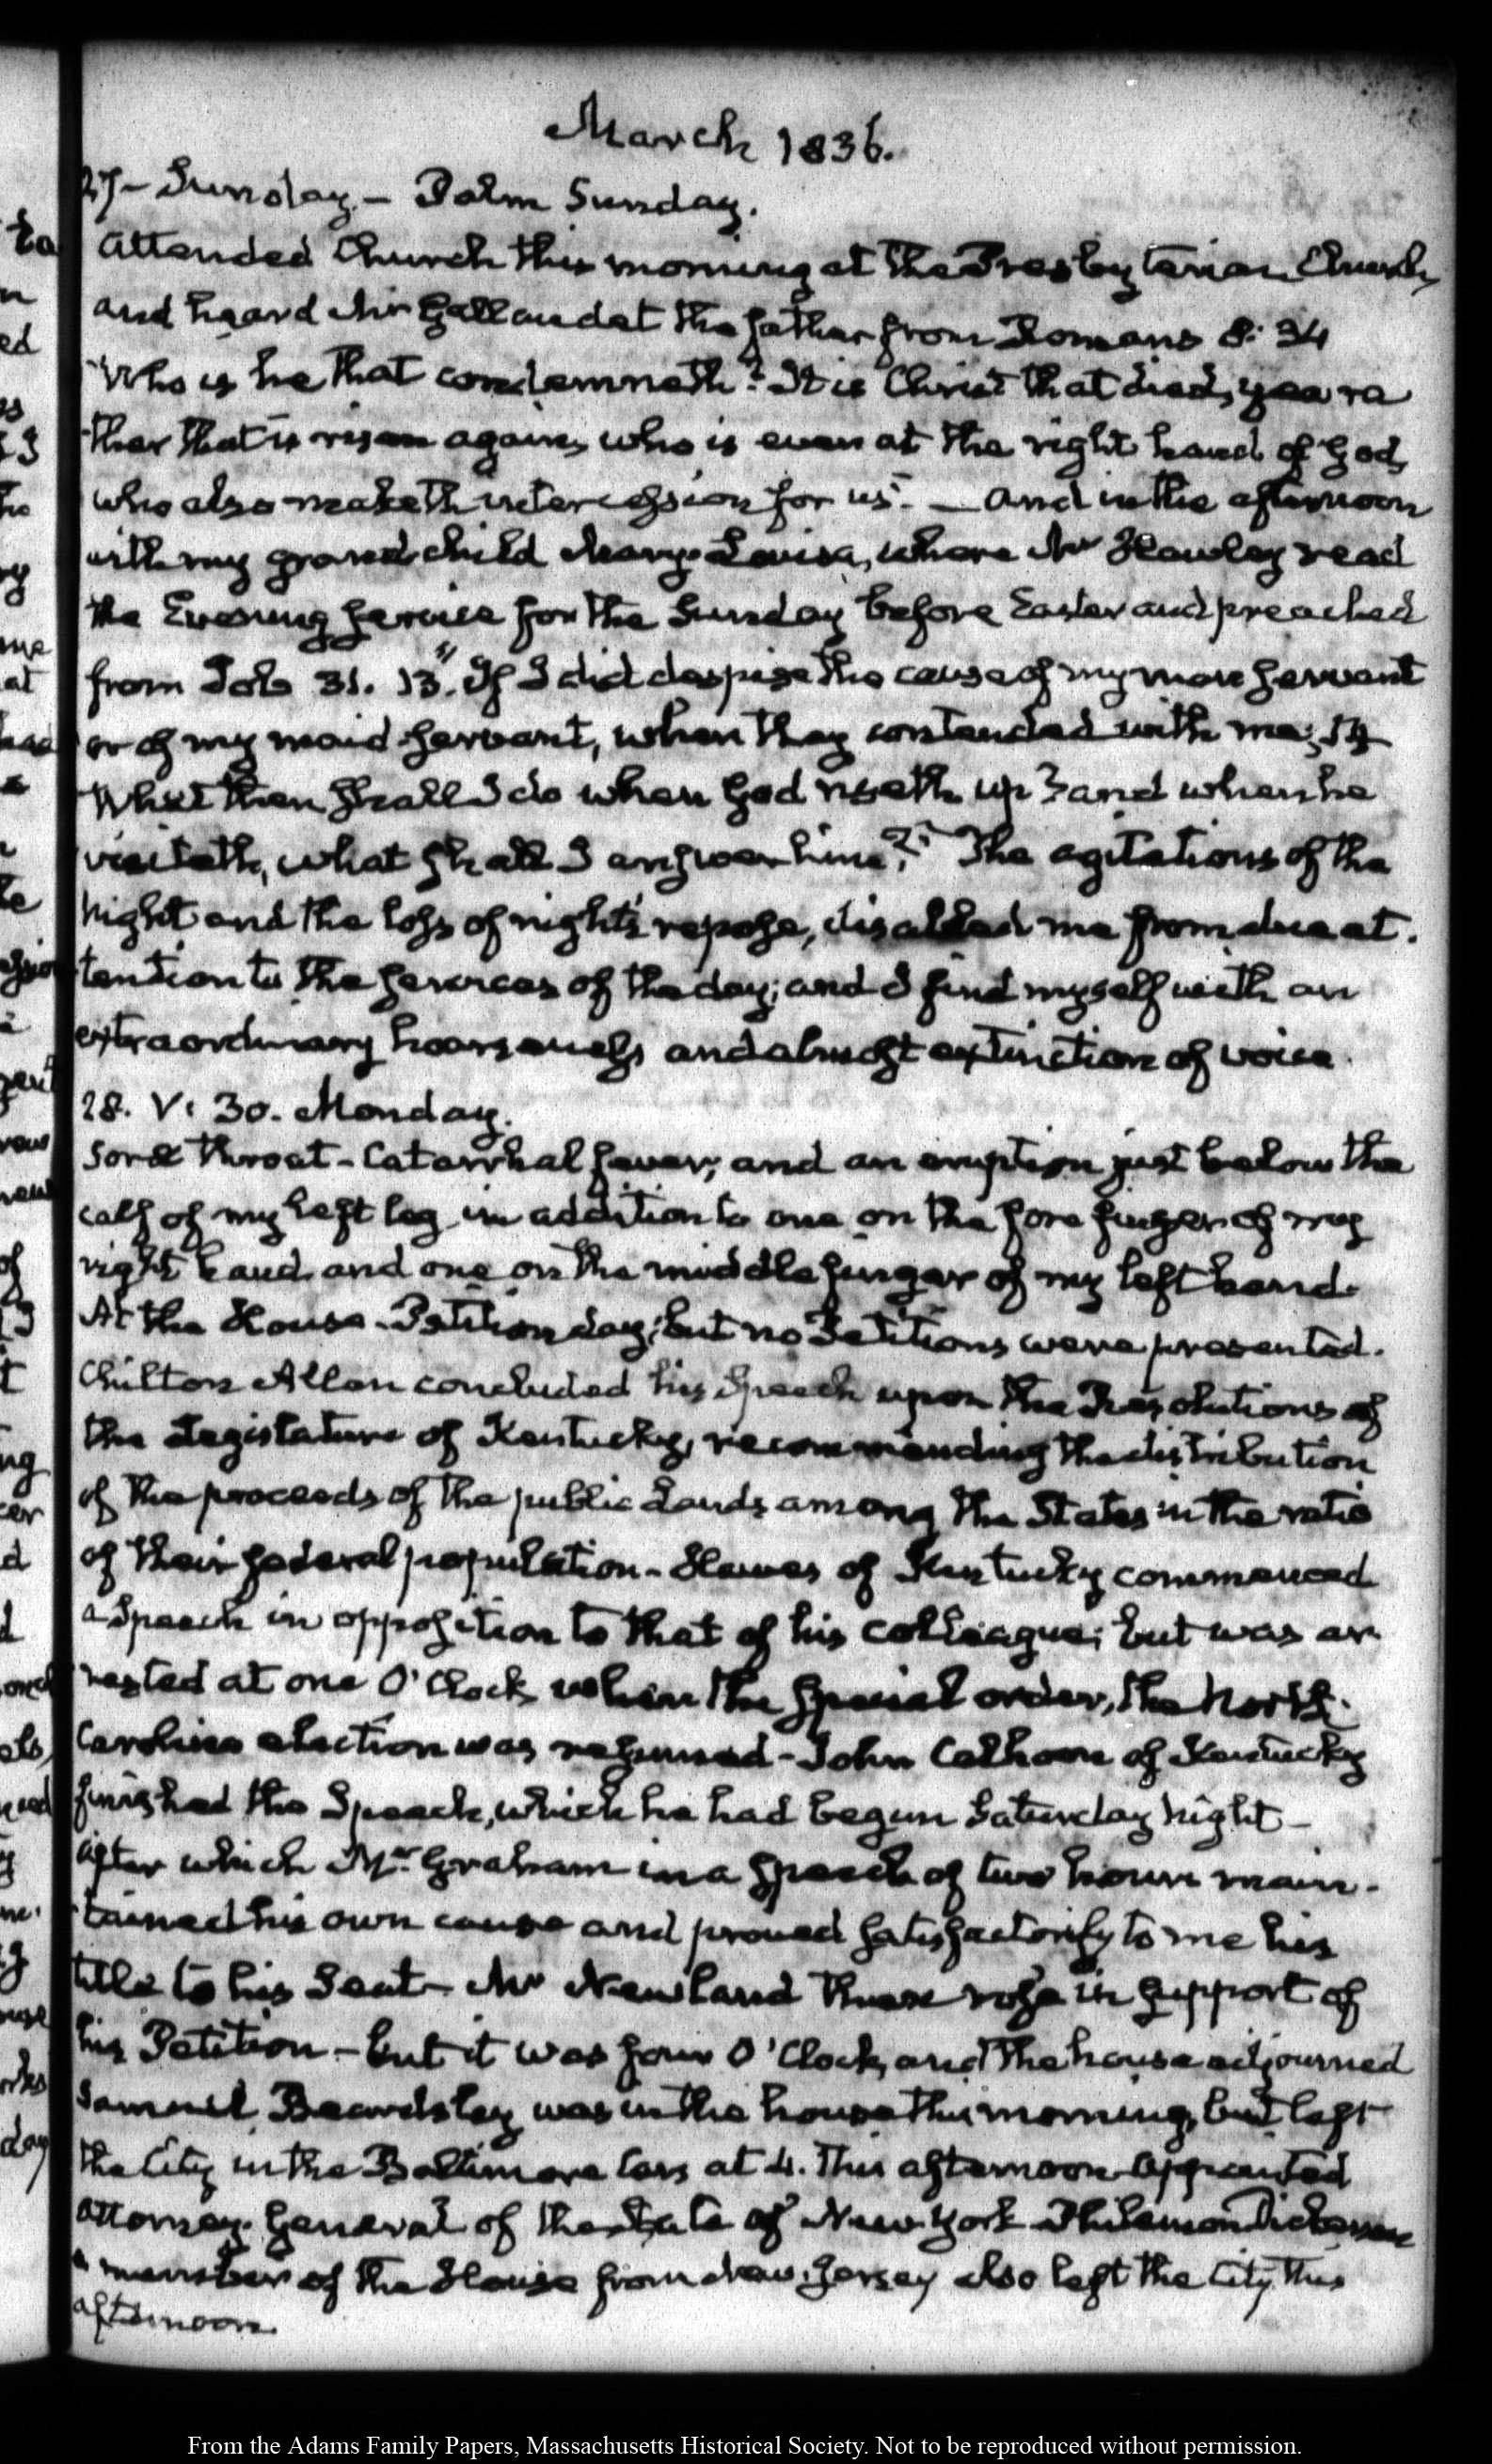 March 1836.
27 - Sunday. - Palm Sunday.
Attended Church this morning at the Presbyterian Church,
and heard Mr Gallaudet the father from Romans 8: 34
"Who is he that condemneth? It is Christ that died, yea ra
ther that is risen again, who is even at the right hand of God,
who also maketh intercession for us". — And in the afternoon
with my grand child Mary-Louisa, where Mr Hawley read
the Evening service for the Sunday before Easter and preached
from Job 31. 13. "If I did despise the cause of my man servant
or of my maid-servant, when they contended with me; 14
What then shall I do when God riseth up? and when he
visiteth, what shall I answer him?" The agitations of the
night and the loss of night's repose, disabled me from due at-
tention to the services of the day; and I find myself with an
extraordinary hoarseness and almost extinction of voice.
28. V: 30. Monday.
Sore throat - Catarrhal fever, and an eruption just below the
calf of my left leg in addition to one on the fore finger of my
right hand and one on the middle finger of my left hand.
At the House - Petition day; but no Petitions were presented.
Chilton Allan concluded his Speech upon the Resolutions of
the Legislature of Kentucky, recommending the distribution
of the proceeds of the public Lands among the States in the ratio
of their federal population - Hawes of Kentucky commenced
a Speech in opposition to that of his colleague; but was ar
rested at one O'Clock when the special order, the North-
Carolina election was resumed - John Calhoon of Kentucky
finished the Speech, which he had begun Saturday night -
after which Mr. Graham in a speech of two hours main-
tained his own cause and proved satisfactorily to me his
title to his Seat - Mr Newland then rose in support of
his Petition - but it was four O'Clock, and the house adjourned
Samuel Beardsley was in the house this morning, but left
the City in the Baltimore Cars at 4. this afternoon appointed
Attorney-General of the State of New-York Philemon Dickerson
a member of the House from New-Jersey also left the City this
afternoon.
ta
From the Adams Family Papers, Massachusetts Historical Society. Not to be reproduced without permission.